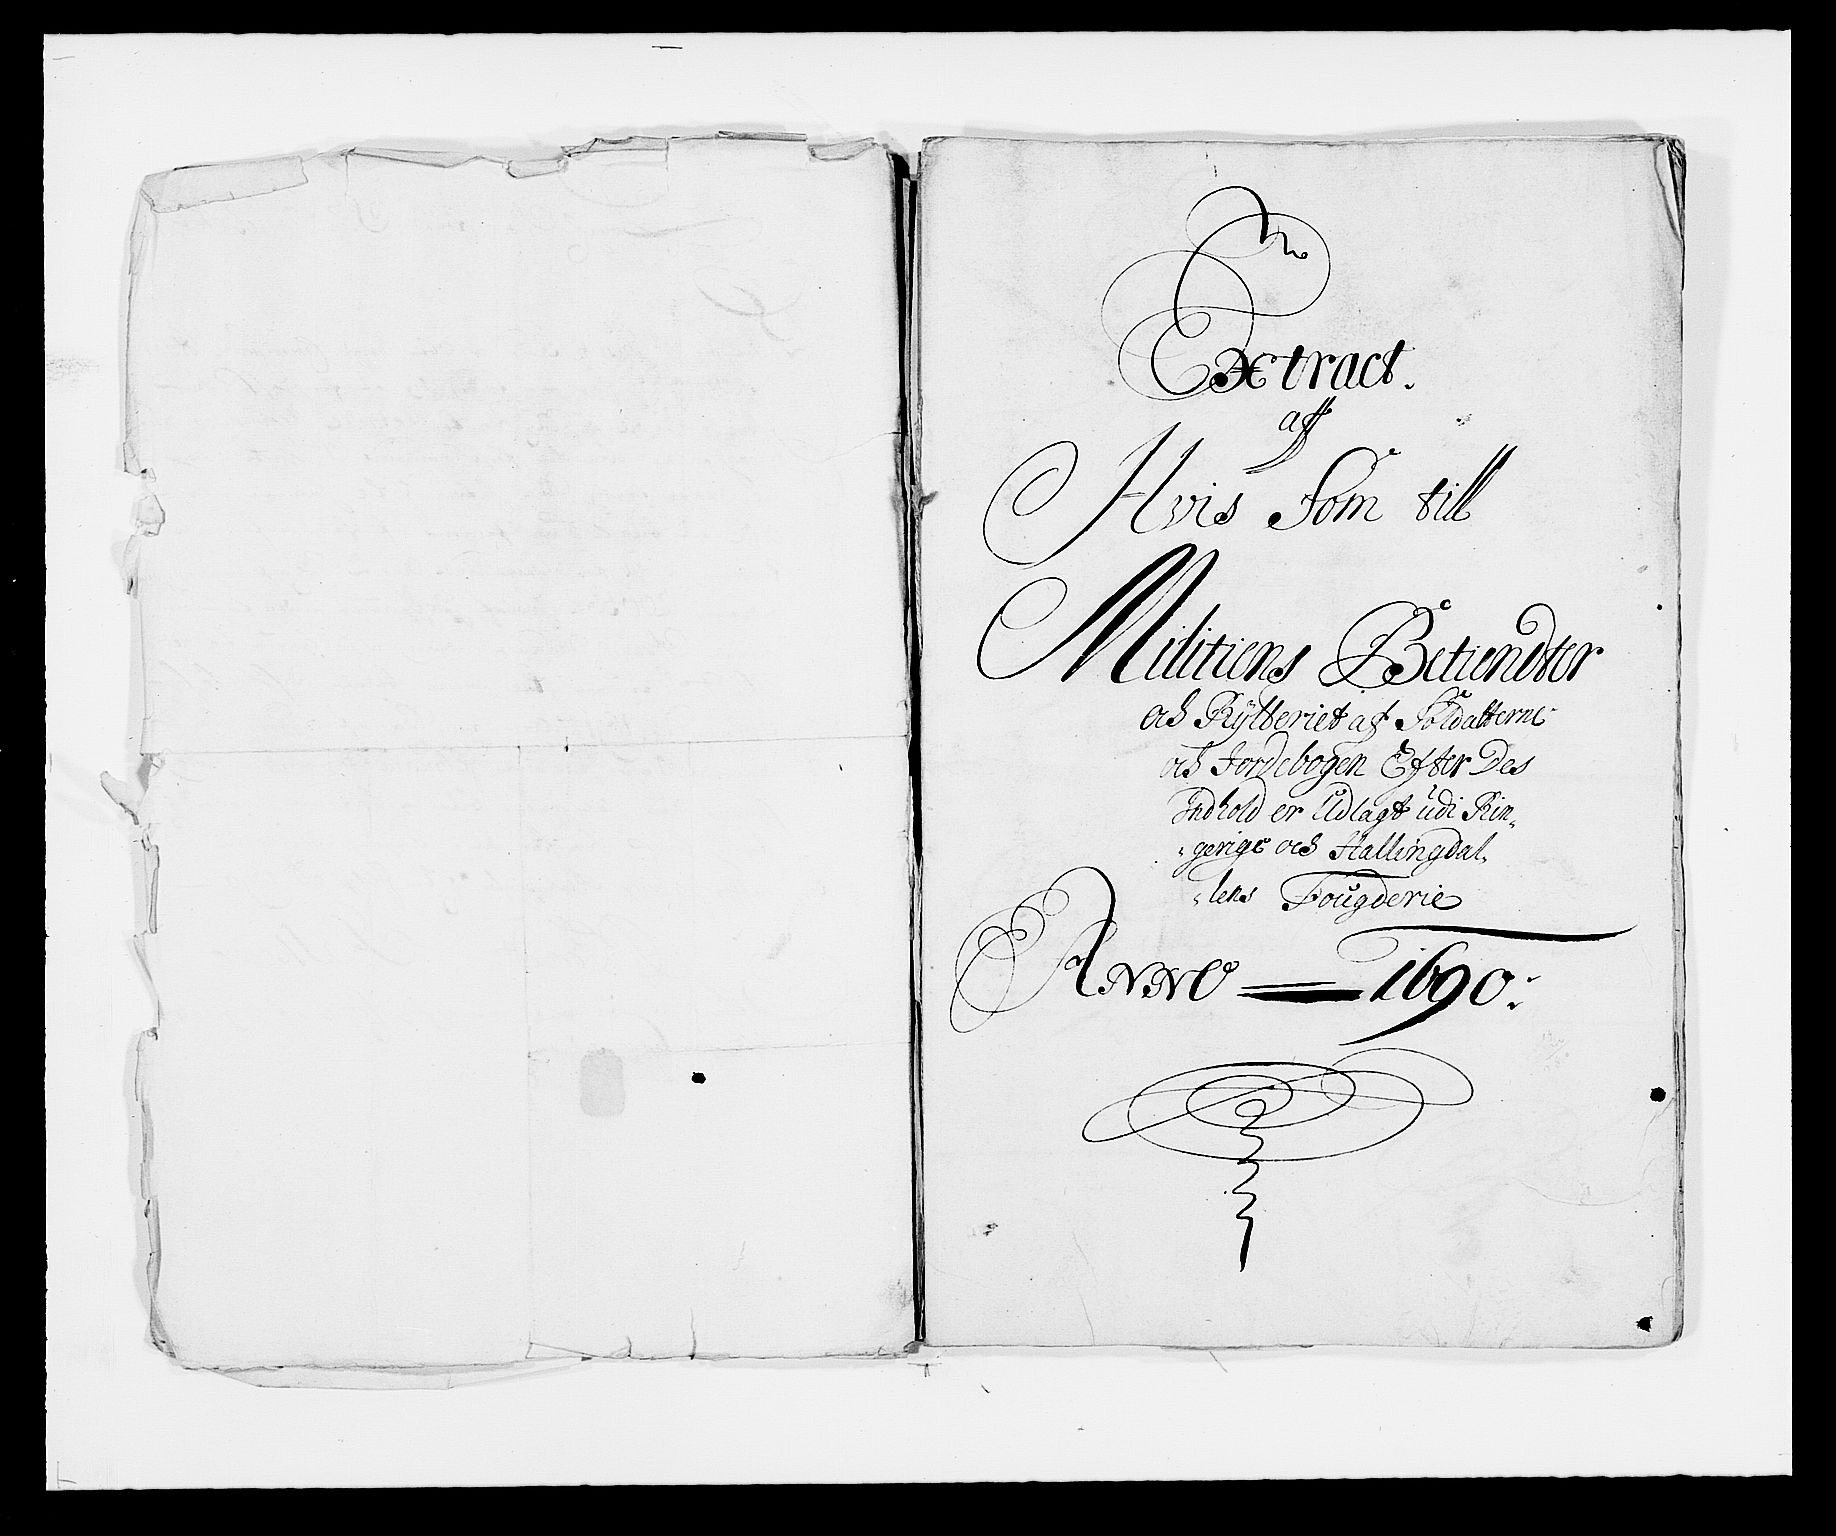 Extract.
aff
Hvis Som till
Militiens Betiendter
och Rÿtteriet af Soldatterne
och Jordebogen Efter Des
Indhold er Udlagt udi Rin„
„gerige och Hallingdal„
„lens Fougderie
Anno — 1690: